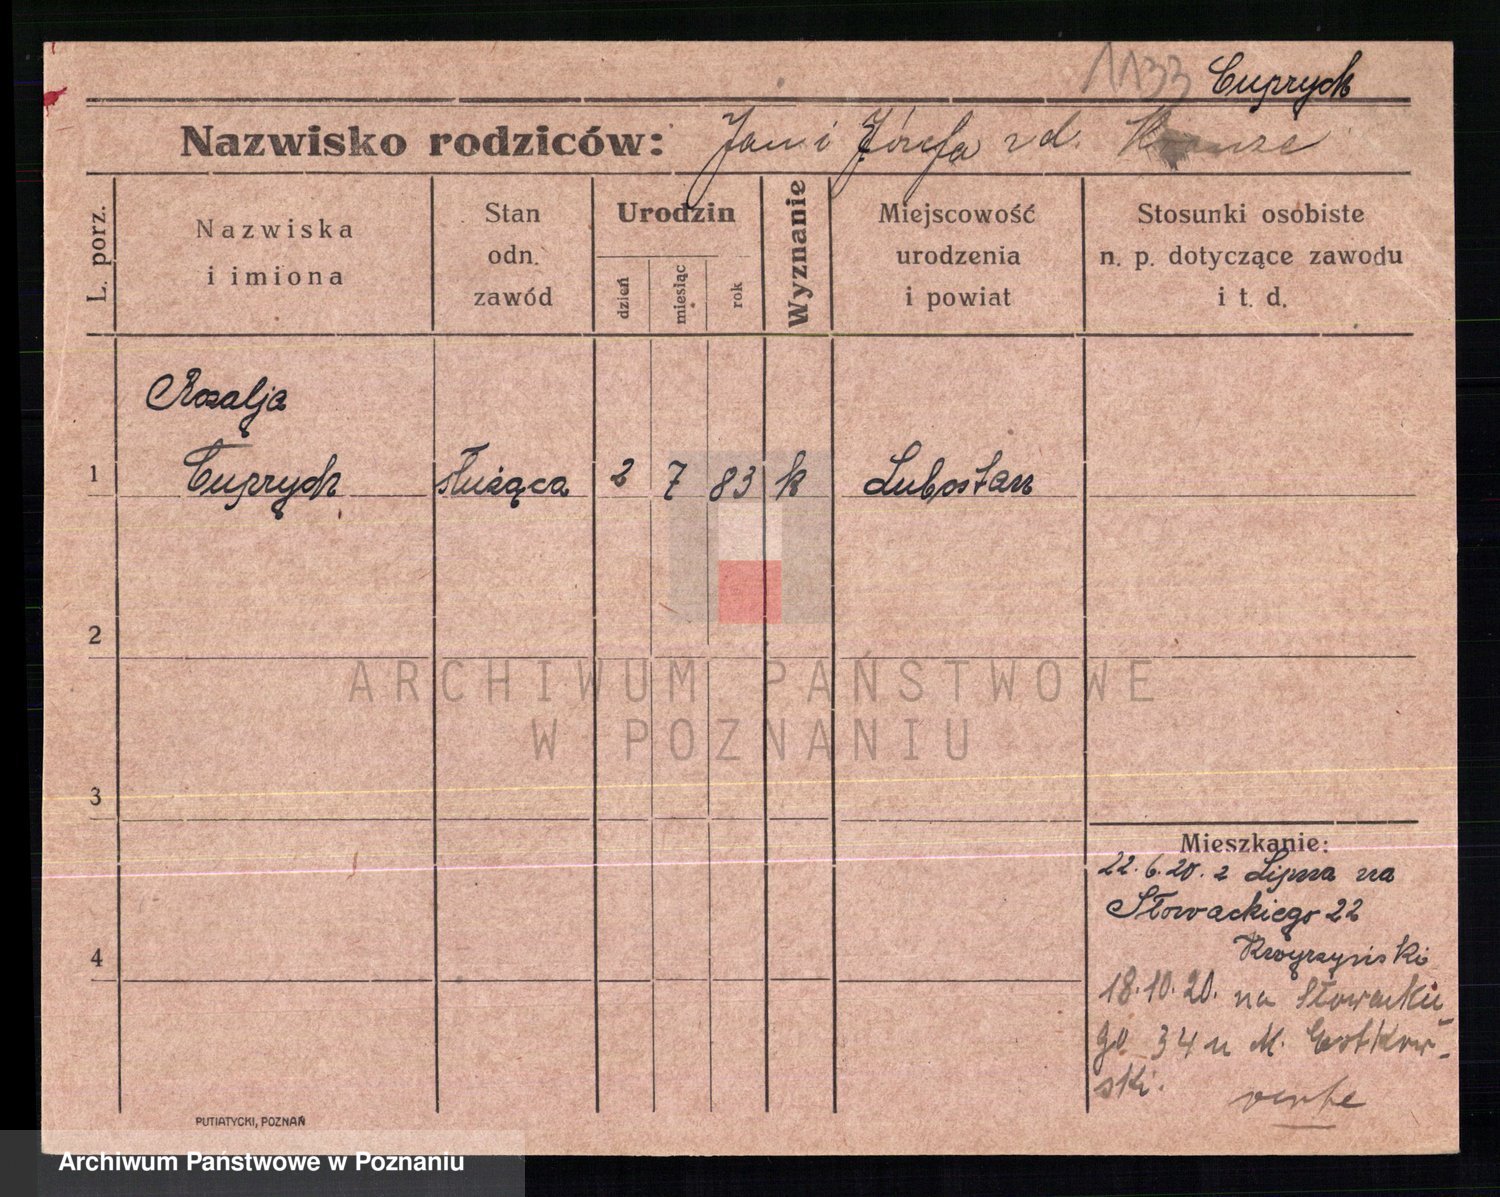 1133 Cuprych
Nazwisko rodziców: Jan i Józefa zd.
L. porz.
Nazwiska
i imiona
Stan
odn.
zawód
Urodzin
dzień
miesiąc
rok
Wyznanie
Miejscowość
urodzenia
i powiat
Stosunki osobiste
n. p. dotyczące zawodu
i t. d.
Rozalja
1 Cuprych służąca 2 7 83 k Lubostan
2
ARCHIWUM PAŃSTWOWE
W POZNANIU
3
Mieszkanie:
22.6.20. z Lipna na
Słowackiego 22
4
18.10.20. na Słowackie-
go 34 u M.
ski.
verte
PUTIATYCKI, POZNAŃ
Archiwum Państwowe w Poznaniu